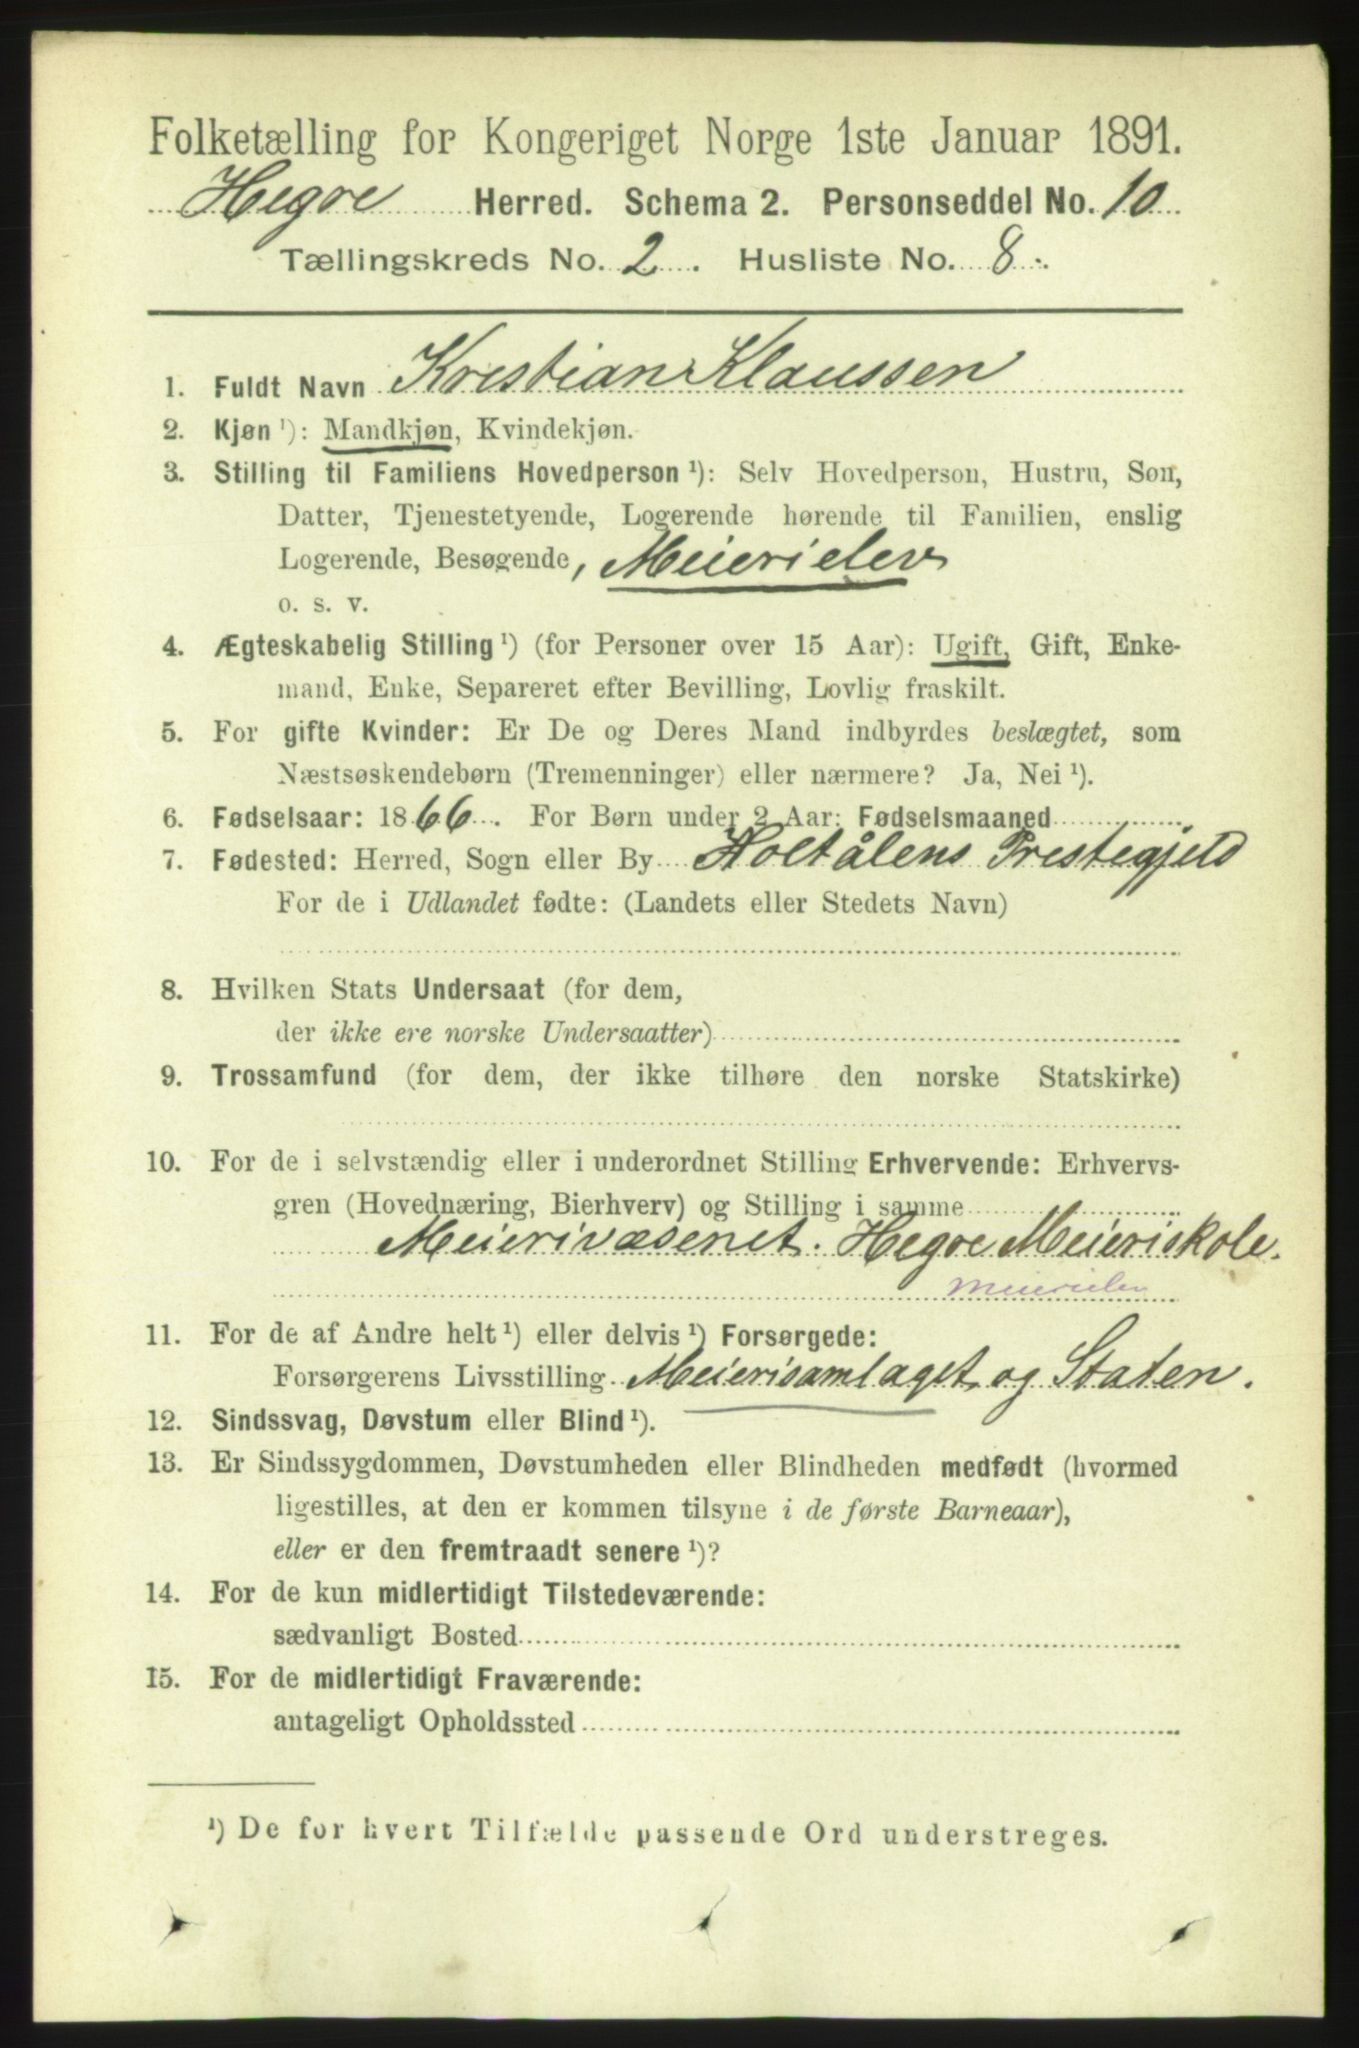 Folketælling for Kongeriget Norge 1ste Januar 1891.
Hegre Herred. Schema 2. Personseddel No. 10
Tællingskreds No. 2. Husliste No. 8.
1. Fuldt Navn Kristian Klaussen
2. Kjøn ¹): Mandkjøn, Kvindekjøn.
3. Stilling til Familiens Hovedperson ¹): Selv Hovedperson, Hustru, Søn,
Datter, Tjenestetyende, Logerende hørende til Familien, enslig
Logerende, Besøgende, Meierielev
o. s. v.
4. Ægteskabelig Stilling ¹) (for Personer over 15 Aar): Ugift, Gift, Enke-
mand, Enke, Separeret efter Bevilling, Lovlig fraskilt.
5. For gifte Kvinder: Er De og Deres Mand indbyrdes beslægtet, som
Næstsøskendebørn (Tremenninger) eller nærmere? Ja, Nei ¹).
6. Fødselsaar: 1866. For Børn under 2 Aar: Fødselsmaaned
7. Fødested: Herred, Sogn eller By Holtålens Prestegjeld
For de i Udlandet fødte: (Landets eller Stedets Navn)
8. Hvilken Stats Undersaat (for dem,
der ikke ere norske Undersaatter)
9. Trossamfund (for dem, der ikke tilhøre den norske Statskirke)
10. For de i selvstændig eller i underordnet Stilling Erhvervende: Erhvervs-
gren (Hovednæring, Bierhverv) og Stilling i samme
Meierivæsenet. Hegre Meieriskole.
Meierielev
11. For de af Andre helt ¹) eller delvis ¹) Forsørgede:
Forsørgerens Livsstilling Meierisamlaget og Staten.
12. Sindssvag, Døvstum eller Blind ¹).
13. Er Sindssygdommen, Døvstumheden eller Blindheden medfødt (hvormed
ligestilles, at den er kommen tilsyne i de første Barneaar),
eller er den fremtraadt senere ¹)?
14. For de kun midlertidigt Tilstedeværende:
sædvanligt Bosted
15. For de midlertidigt Fraværende:
antageligt Opholdssted
¹) De for hvert Tilfælde passende Ord understreges.